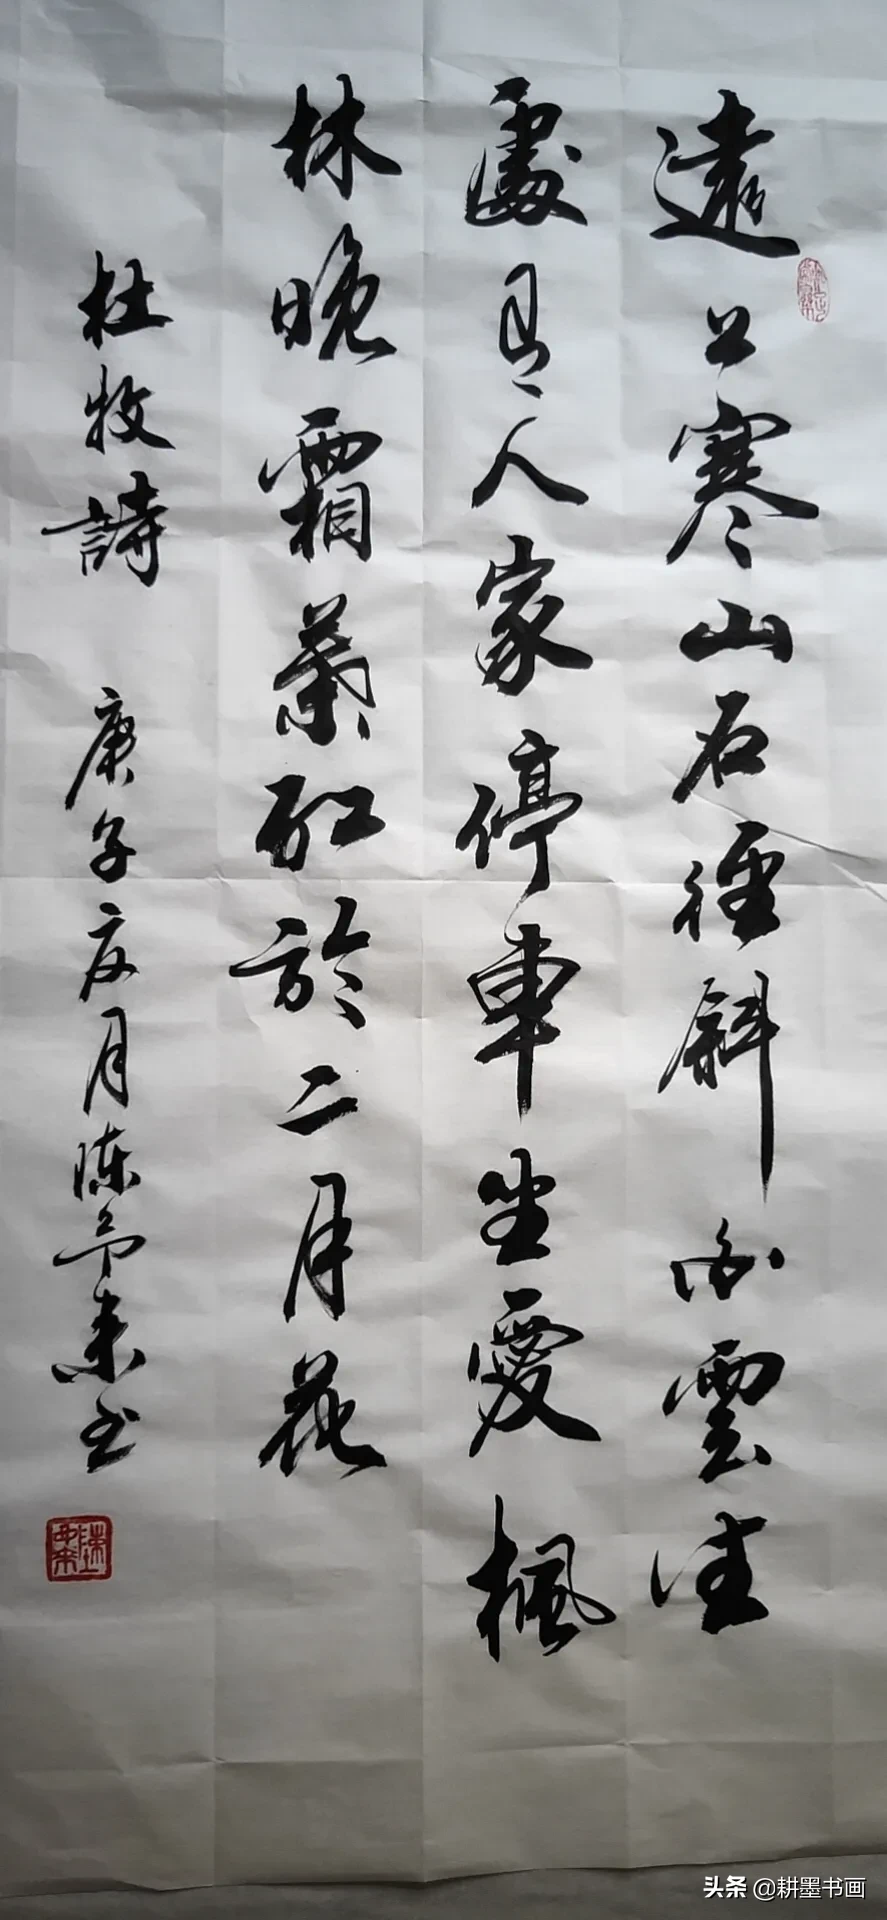 遠上寒山石徑斜白雲生
處有人家停車坐愛楓
林晚霜葉紅於二月花
杜牧詩 庚子夏月陳来书
头条 @耕墨书画